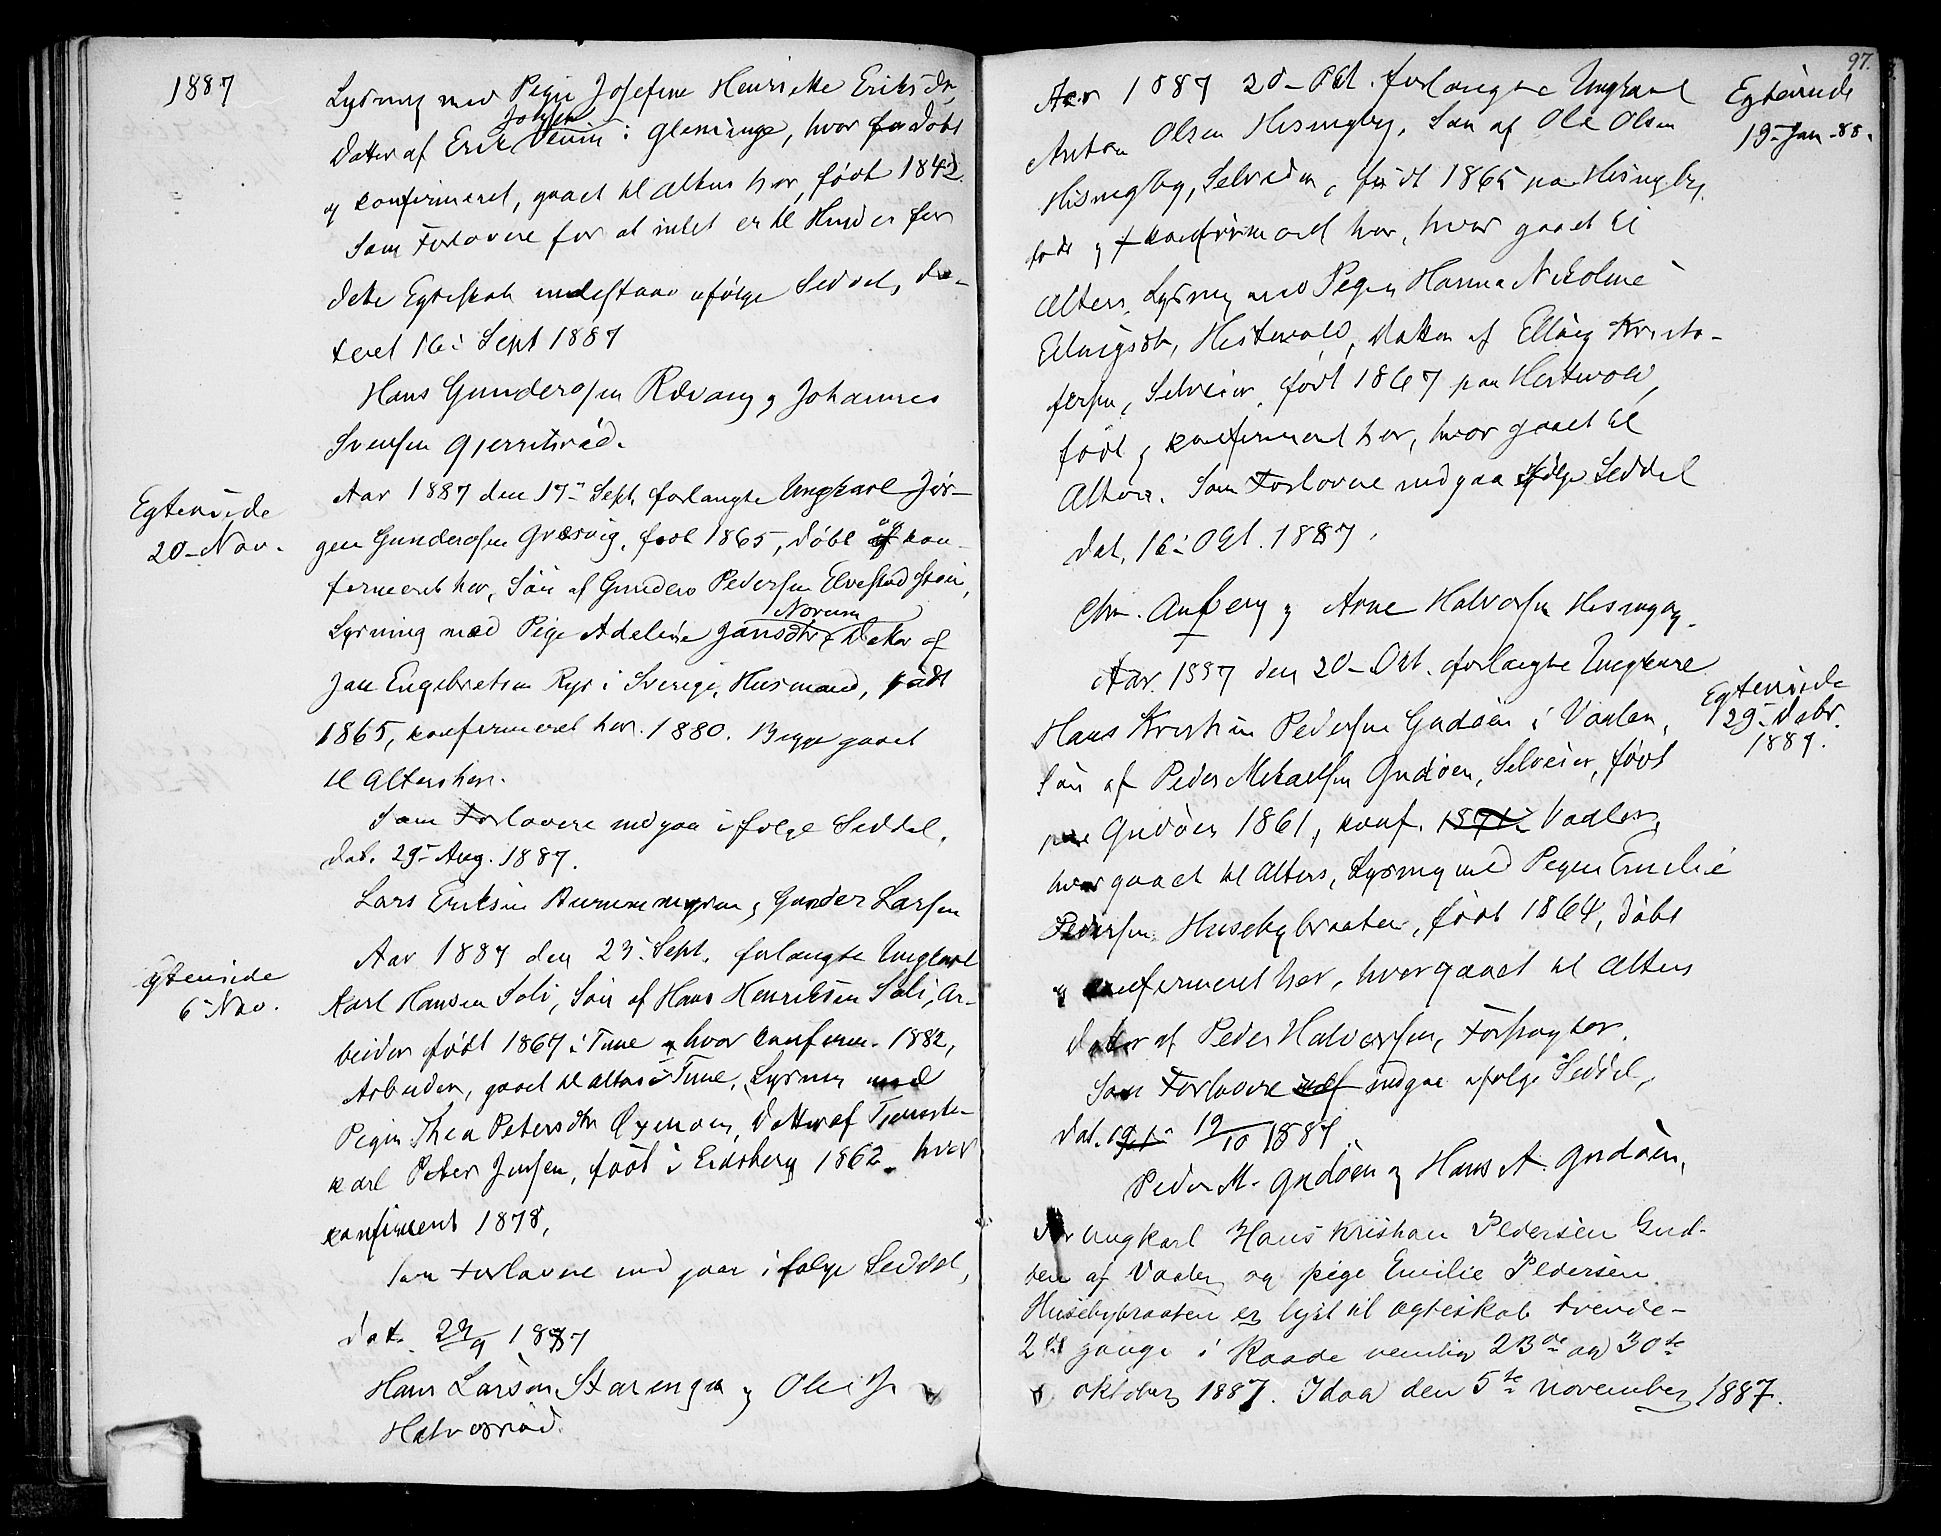 1887
Lysning med Pige Josefine Henriette Eriksdr,
Datter af Erik i Glemminge, hvor døbt
og konfirmeret, gaaet til alters her, født 1842.
Som Forlovere for at intet er til Hinder for
dette Egteskab indestaar ifølge Seddel, da-
teret 16 Sept 1887
Hans Gundersen og Johannes
Svensen
Egteviede
20 Nov.
Aar 1887 den 17 Sept. forlangte Ungkarl Jør-
gen Gundersen Græsvig, født 1865, døbt og kon-
firmeret her, Søn af Gunders Pedersen
Norum
Lysning med Pige Adeline Jansdtr, Datter af
Jan Engebretsen i Sverige, Husmand, født
1865, konfirmeret her 1880. Begge gaaet
til Alters her.
Som Forlovere indgaa ifølge Seddel,
dat. 29 Aug. 1887.
Lars Eriksen og Gunder Larsen
Egteviede
6 Nov.
Aar 1887 den 23 Sept. forlangte Ungkarl
Karl Hansen Soli, Søn af Hans Henriksen Soli, Ar-
beider født 1867 i Tune hvor konfirm. 1882,
Arbeider, gaaet til alters i Tune, Lysning med
Pigen Thea Petersdtr, Datter af Tjeneste-
karl Peter Jensen, født i Eidsberg 1862, hvor
konfirmert 1878,
Som Forlovere indgaar ifølge Seddel,
dat. 23/9 1887
Hans Larsen og Ole
Halvorsrød.
97.
Aar 1887 20 Okt. forlangte Ungkarl
Anton Olsen Hisingby, Søn af Ole Olsen
Hisingby, Selveier, født 1865 paa Hisingby,
født og konfirmeret her, hvor gaaet til
Alters, Lysning med Pigen Hanna Nikoline
Ellingsdtr, Hestevold, datter af Elling Kristo-
fersen, Selveier, født 1867 paa Hestevold,
født og konfirmeret her, hvor gaaet til
Alters. Som Forlovere indgaa ifølge Seddel
dat. 16 Okt. 1887.
Chr. og Arne Halvorsen Hisingby.
Egteviede
19 Jan. 88.
Aar 1887 den 20 Okt. forlangte Ungkarl
Hans Kristian Pedersen Gudøen i Vaaler,
Søn af Peder Mikaelsen Gudøen, Selveier, født
paa Gudøen 1861, konf. i Vaaler,
hvor gaaet til Alters, Lysning med Pigen Emelie
Pedersen Husebybraaten, født 1864, døbt
og konfirmeret her, hvor gaaet til Alters
datter af Peder Halvorsen, Forpagter.
Som Forlovere indgaa ifølge Seddel,
dat. 19/10 1887.
Peder M. Gudøen og Hans A. Gudøen.
Egteviede
29 Debr.
1887.
For ungkarl Hans Kristian Pedersen Gud-
øen af Vaaler og pige Emilie Pedersen
Husebybraaten er lyst til ægteskab trende-
2de gange i Raade nemlig 23de og 30te
oktober 1887. Idaa den 5te november 1887.